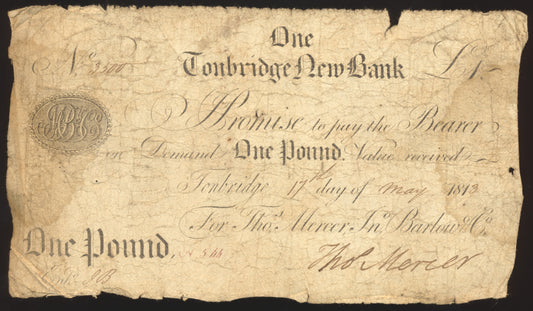 One
No 3500 Tonbridge New Bank £1
I Promise to pay the Bearer
on Demand One Pound. Value received
Tonbridge 17th day of May 1813
For Thos. Mercer, Jno. Barlow & Co.
One Pound,
Thos. Mercer
Entd.